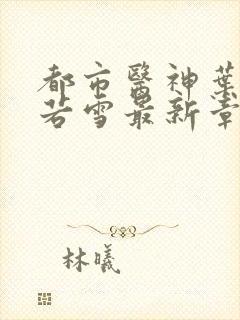 都市醫神葉
若雪最新章
林曦